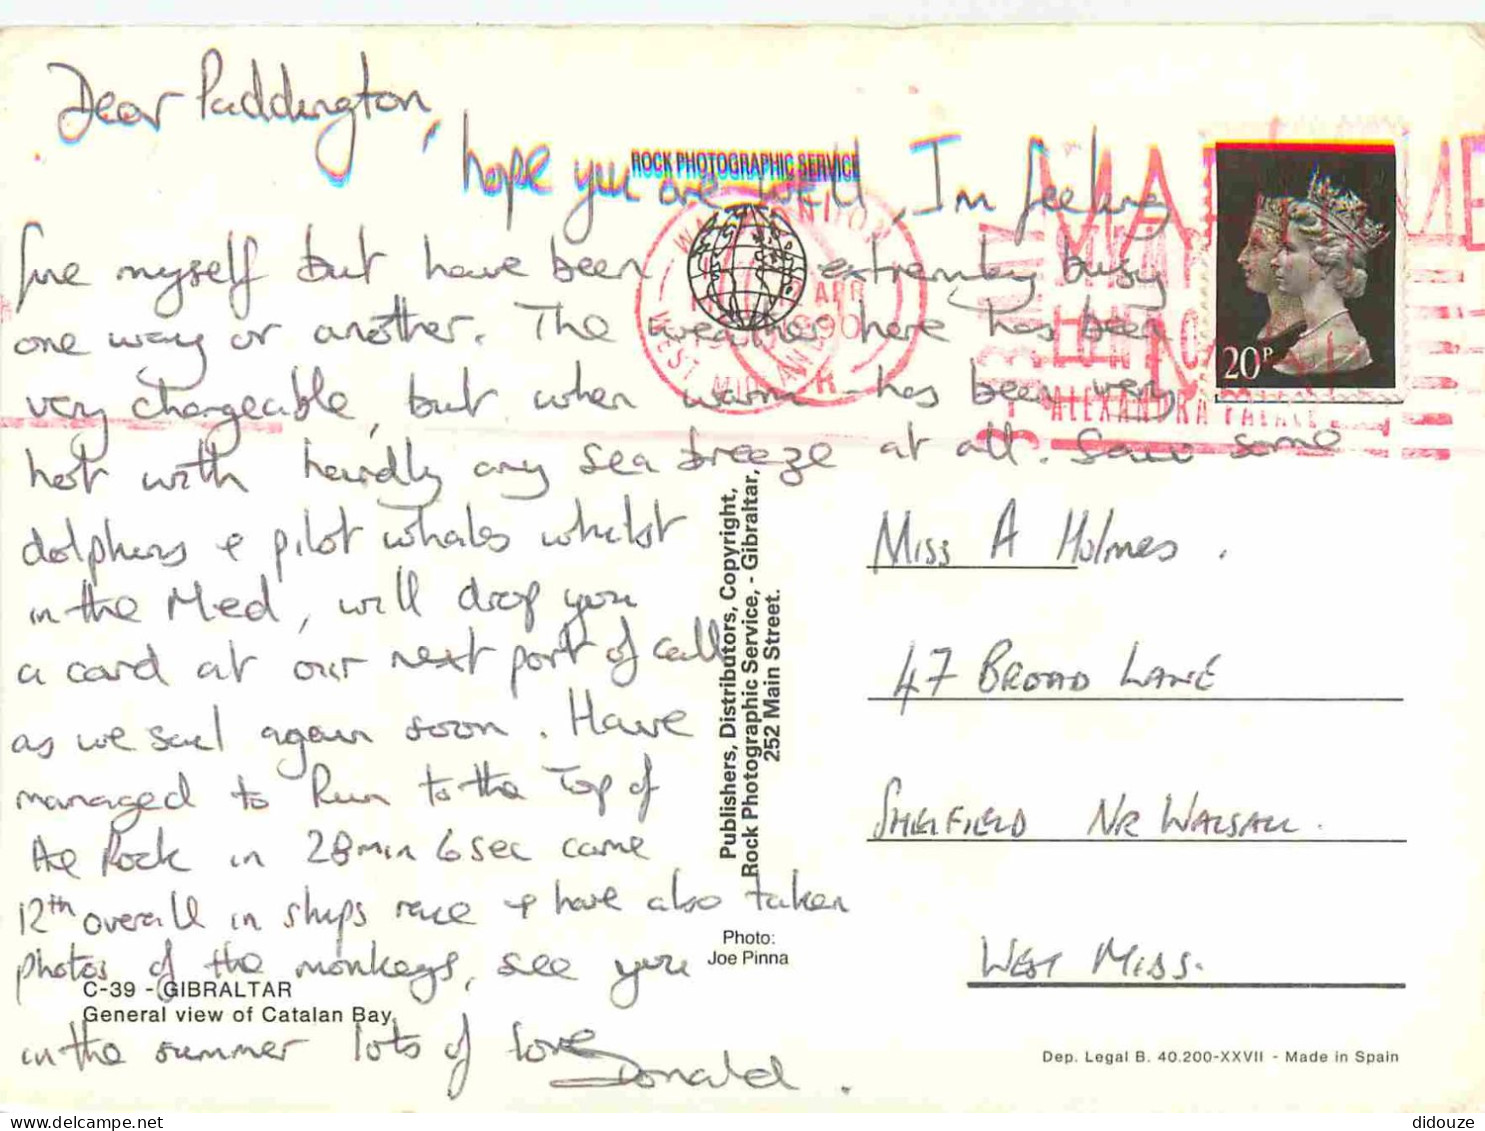 Dear Paddington,
hope you are well, I'm feeling
fine myself but have been extremley busy
one way or another. The weather here has been
very changeable, but when warm has been very
hot with hardly any sea breeze at all. Saw some
dolphins & pilot whales whilst
in the Med, will drop you
a card at our next port of call
as we sail again soon. Have
managed to Run to the Top of
the Rock in 28min 6sec came
12th overall in ships race & have also taken
photos of the monkeys, see you
in the summer lots of love
Donald.
ROCK PHOTOGRAPHIC SERVICE
APR
1990
WEST MIDLANDS
LONDON
ALEXANDRA PALACE
20P
Publishers, Distributors, Copyright,
Rock Photographic Service, - Gibraltar,
252 Main Street.
Photo:
Joe Pinna
Miss A Holmes.
47 BROAD LANE
SHELFIELD NR WALSALL.
WEST MIDS.
C-39 - GIBRALTAR
General view of Catalan Bay
Dep. Legal B. 40.200-XXVII - Made in Spain
delcampe.net
didouze